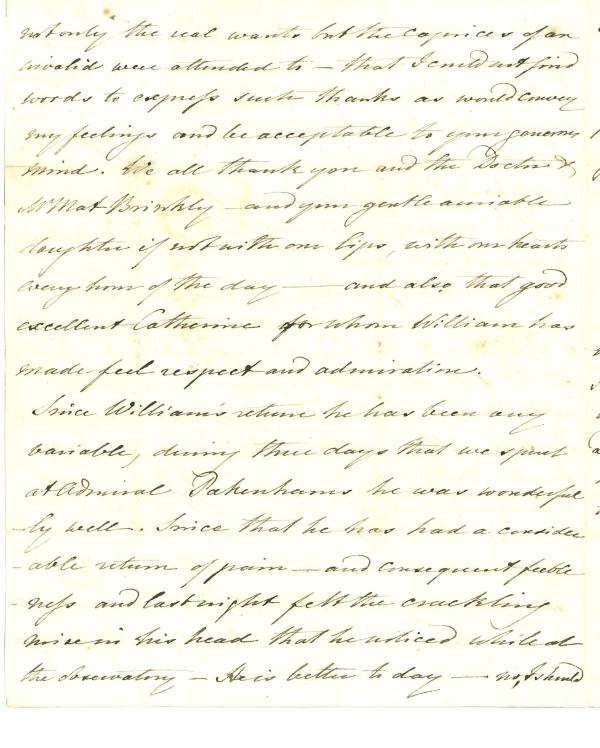 not only the real wants but the caprices of an
invalid were attended to – that I could not find
words to express such thanks as would convey
my feelings and be acceptable to your generous
mind. We all thank you and the Doctor &
Mr Mat Brinkly – and your gentle amiable
daughter if not with our lips, with our hearts
every hour of the day — and also that good
excellent Catherine for whom William has
made feel respect and admiration.
Since William's return he has been very
variable, during three days that we spent
at Admiral Pakenhams he was wonderful
-ly well. Since that he has had a consider
-able return of pain – and consequent feeble
-ness and last night felt the crackling
noise in his head that he noticed while at
the observatory – He is better to day — no, I should